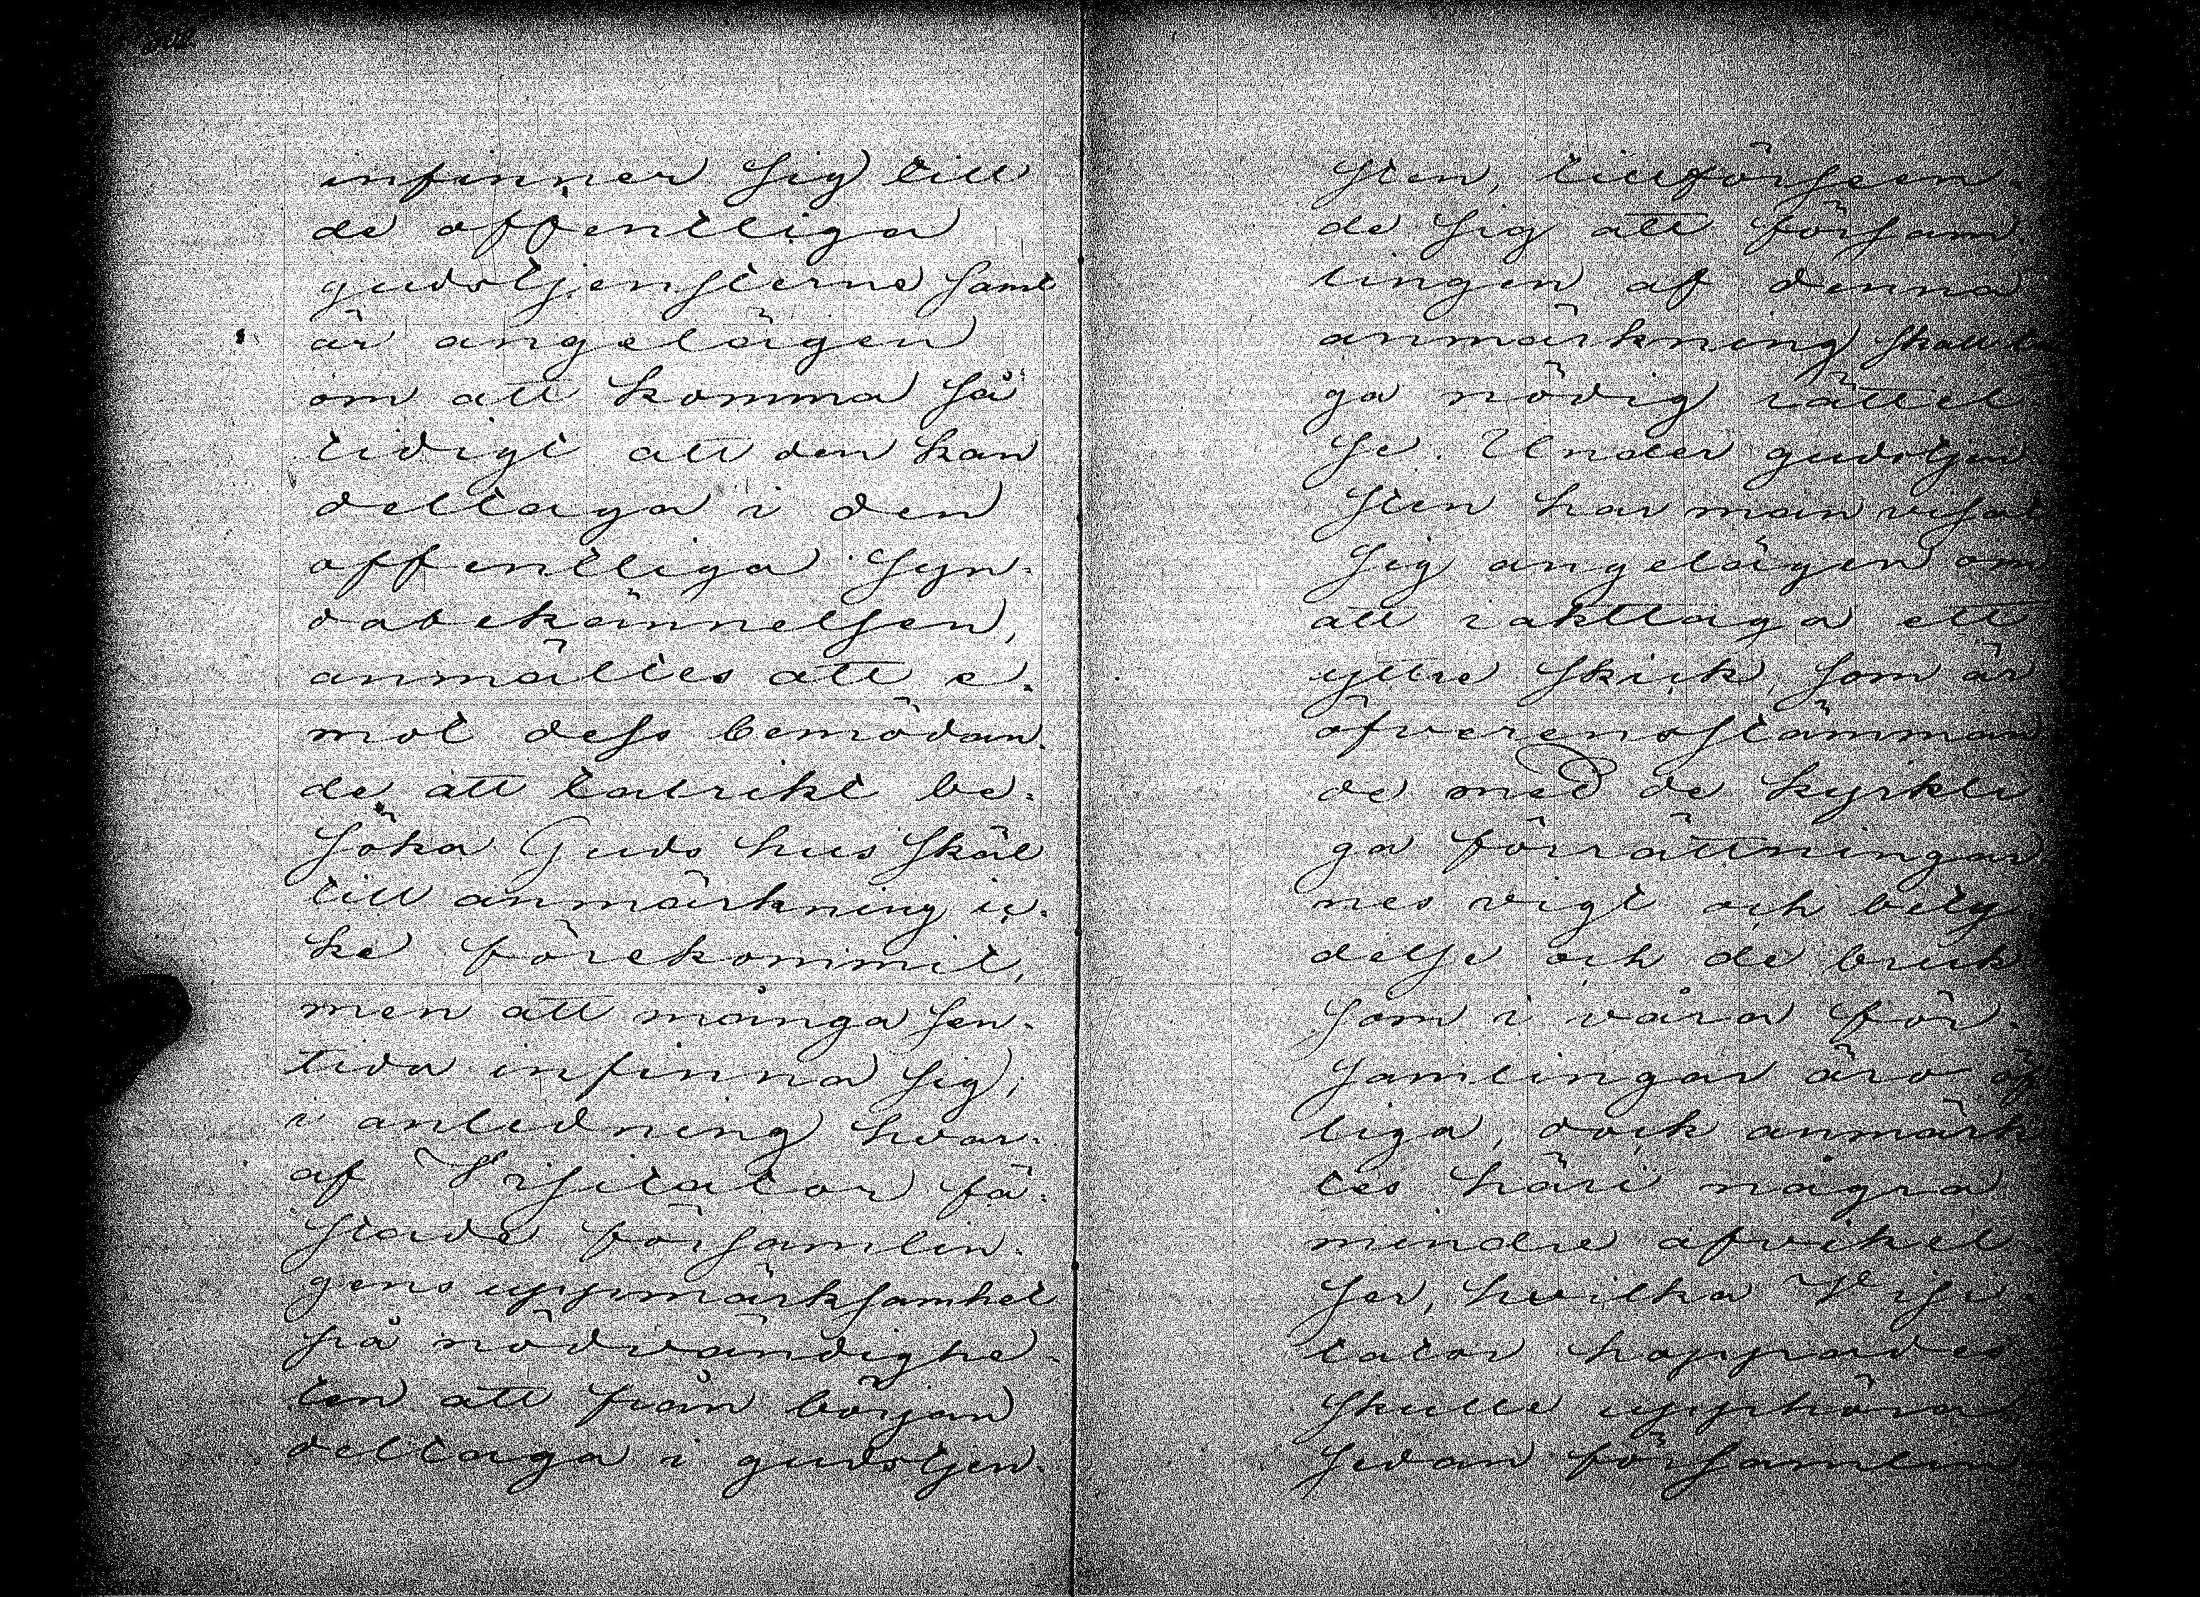 infinner sig till
de offentliga
gudstjensterne samt
är angelägen
om att komma så
tidigt att den kan
deltaga i den
offentliga syn-
dabekännelsen,
anmältes att e-
mot dess bemödan-
de att talrikt be-
söka Guds hus skäl
till anmärkning ic-
ke förekommit,
men att många sen-
tida infinna sig;
i anledning hvar-
af Visitator fä-
stade församlin-
gens uppmärksamhet
på nödvändighe-
ten att från början
deltaga i gudstjen-
sten, tillförseen-
de sig att försam-
lingen af denna
anmärkning skall ta
ga nödig rättel
se. Under gudstjen
sten har man visat
sig angelägen om
att iakttaga ett
yttre skick, som är
öfverensstämman
de med de kyrkli
ga förrättningar
nes vigt och bety
delse och de bruk
som i våra för-
samlingar äro öf
liga, dock anmärk
tes häri några
mindre afvikel
ser, hvilka Visi-
tator hoppades
skulle upphöra,
sedan församlin